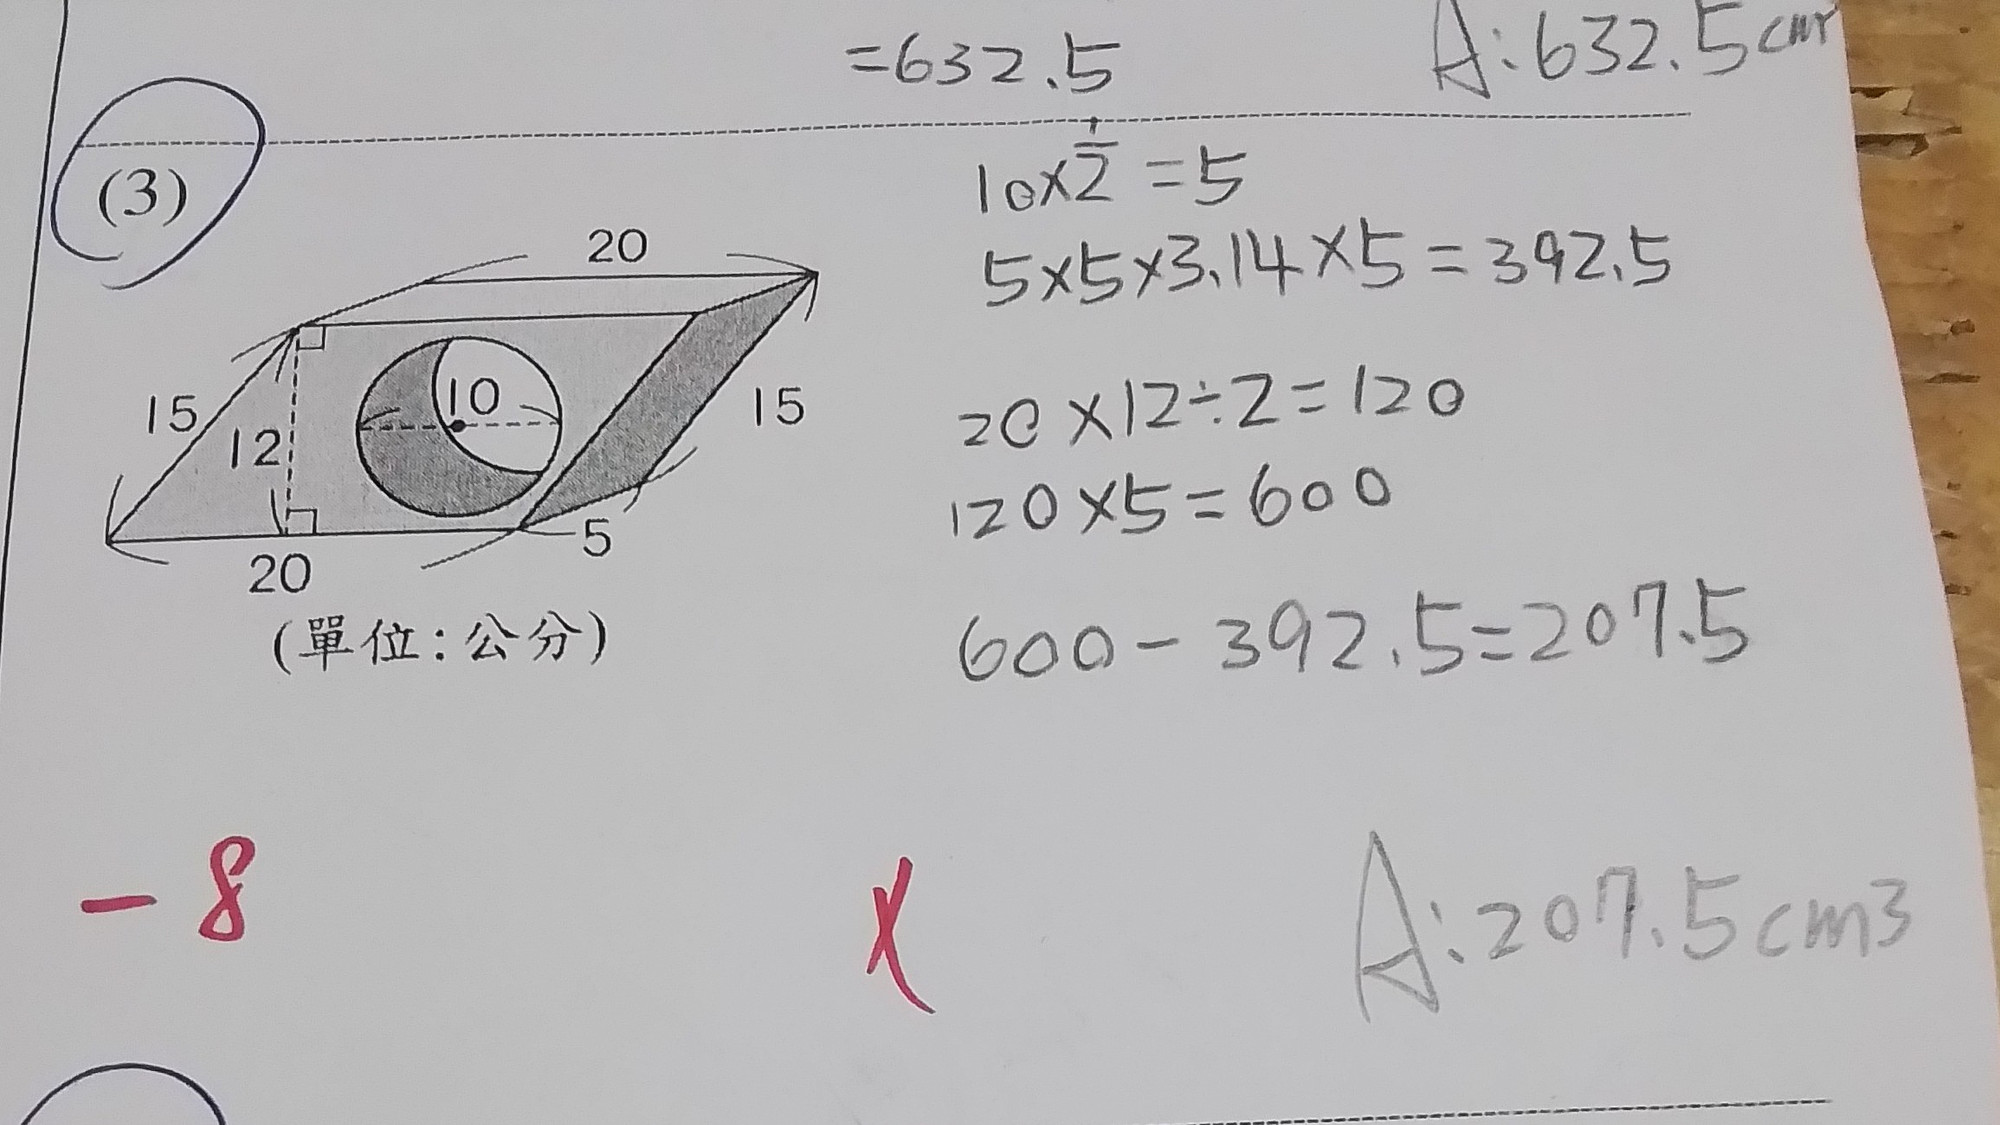 =632.5
A:632.5cm
(3)
10×1/2=5
5×5×3.14×5=392.5
20
15
12
10
15
5
20
(單位:公分)
20×12÷2=120
120×5=600
600-392.5=207.5
-8
X
A:207.5cm3